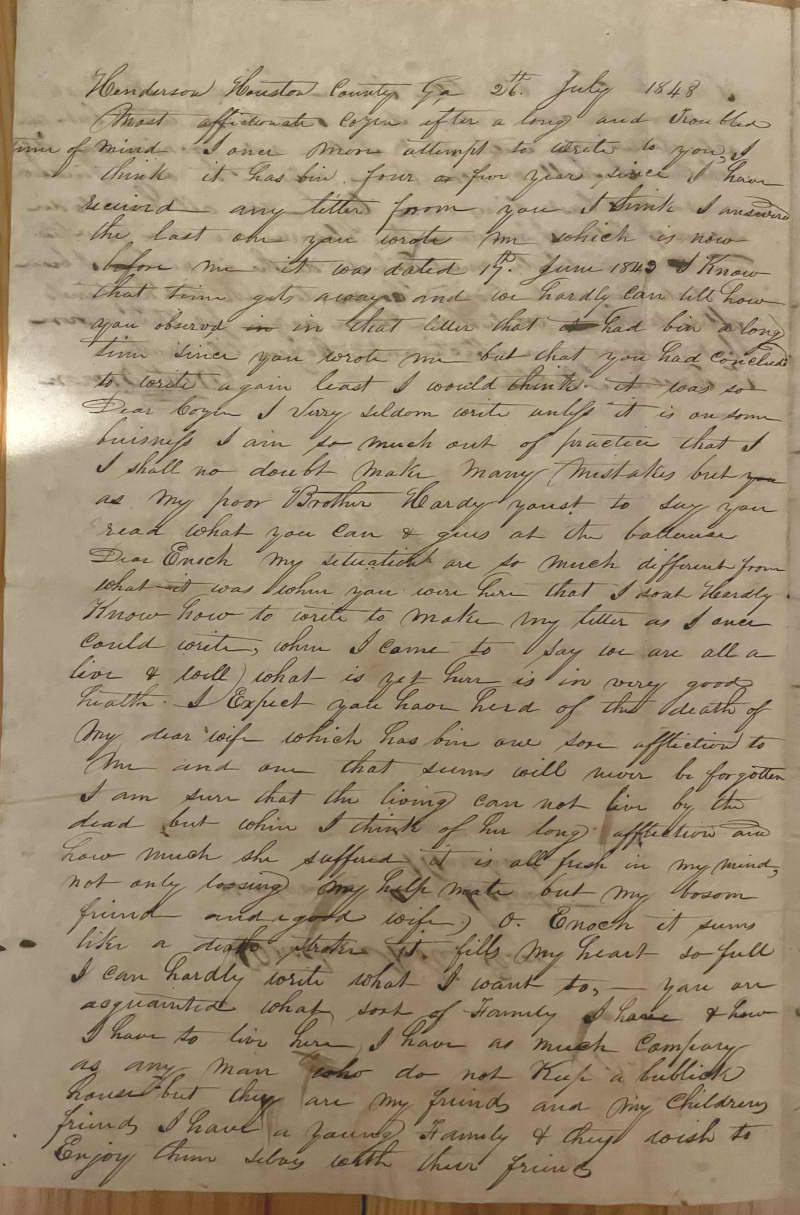 Henderson Houston County Ga 26th July 1848
Most affictionate Cozen after a long and Troubled
time of mind I once more attempt to write to you, I
think it has bin four or five year since I have
received any letter from you I think I answered
the last one you wrote me which is now
before me it was dated 17th June 1843 I Know
that time gets away and we hardly can till how
you observd in in that letter that had bin a long
time since you wrote me but that you had conclude
to write again least I would think it was so
Dear Cozen I Verry seldom write unless it is on some
buisness I am so much out of practice that I
I shall no doubt make many mistakes but you
as my poor Brother Hardy youst to say you
read what you can & gess at the ballance
Dear Enoch my situation are so much different from
what it was when you were here that I dont Hardly
Know how to write to make my letter as I once
could write, when I come to say we are all a
live & well) what is yet here is in very good
health. I Expect you have herd of the death of
my dear wife which has bin one sore affliction to
me and one that seems will never be forgotten
I am sure that the living can not live by the
dead but when I think of her long affliction and
how much she suffered it is all fresh in my mind,
not only loosing my help mate but my bosom
friend and a good wife) O. Enoch it seems
like a death stroke it fills my heart so full
I can hardly write what I want to, — you are
acquainted what sort of Family I have & how
I have to live here, I have as much Company
as any man who do not Keep a publick
house but they are my friends and my Childrens
friends I have a young Family & they wish to
Enjoy them selves with their friends